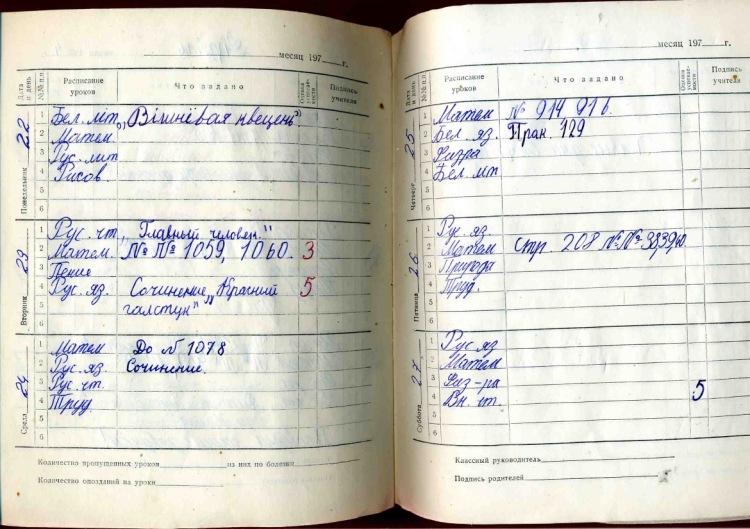 месяц 197 г.
Дата и день №№ п.п. Расписание уроков Что задано Оценка успеваемости Подпись учителя
Понедельник 22
1 Бел. літ. „Вішнёвая квецень"
2 Матем.
3 Рус. лит.
4 Рисов.
5
6
Вторник 23
1 Рус. чт. „Главный человек"
2 Матем. №№ 1059, 1060. 3
3 Пение
4 Рус. яз. Сочинение „Красный 5
5 галстук"
6
Среда 24
1 Матем До № 1078
2 Рус. яз. Сочинение.
3 Рус. чт.
4 Труд
5
6
Количество пропущенных уроков из них по болезни
Количество опозданий на уроки
месяц 197 г.
Дата и день №№ п.п. Расписание уроков Что задано Оценка успеваемости Подпись учителя
Четверг 25
1 Матем № 914 916.
2 Бел. яз. Пран. 129
3 Физра
4 Бел. літ
5
6
Пятница 26
1 Рус. яз.
2 Матем стр. 208 №№ 38,39,40
3 Природа
4 Труд.
5
6
Суббота 27
1 Рус. яз
2 Матем
3 Физ-ра
4 Вн. чт. 5
5
6
Классный руководитель
Подпись родителей